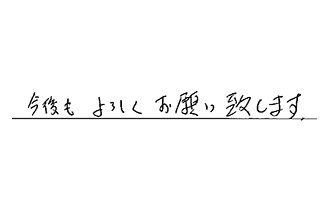 今後も よろしく お願い 致します.